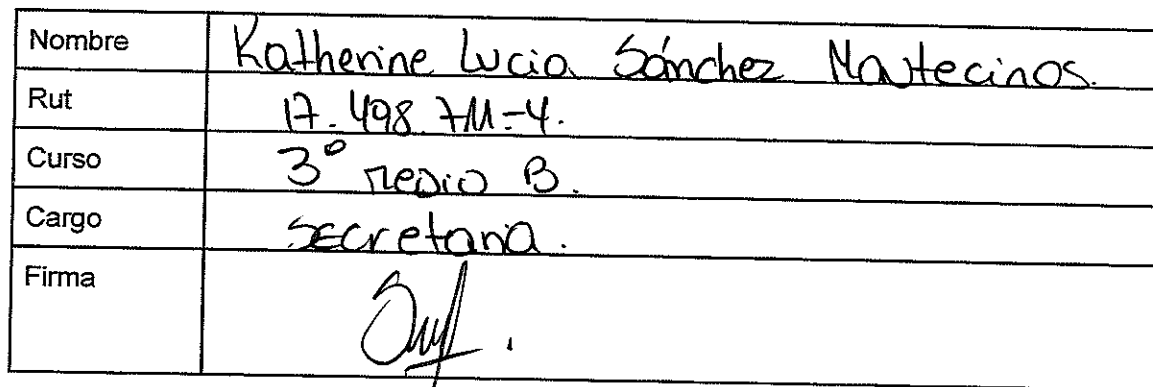 Nombre Katherine Lucia Sánchez Montecinos.
Rut 17.498.711-4.
Curso 3° medio B.
Cargo secretaria.
Firma